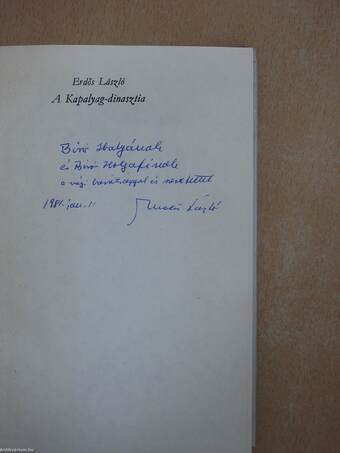 Erdős László
A Kapalyag-dinasztia
Bíró Ibolyának
és Bíró
a régi barátsággal és szeretettel
1981. jan. 11
Erdős László